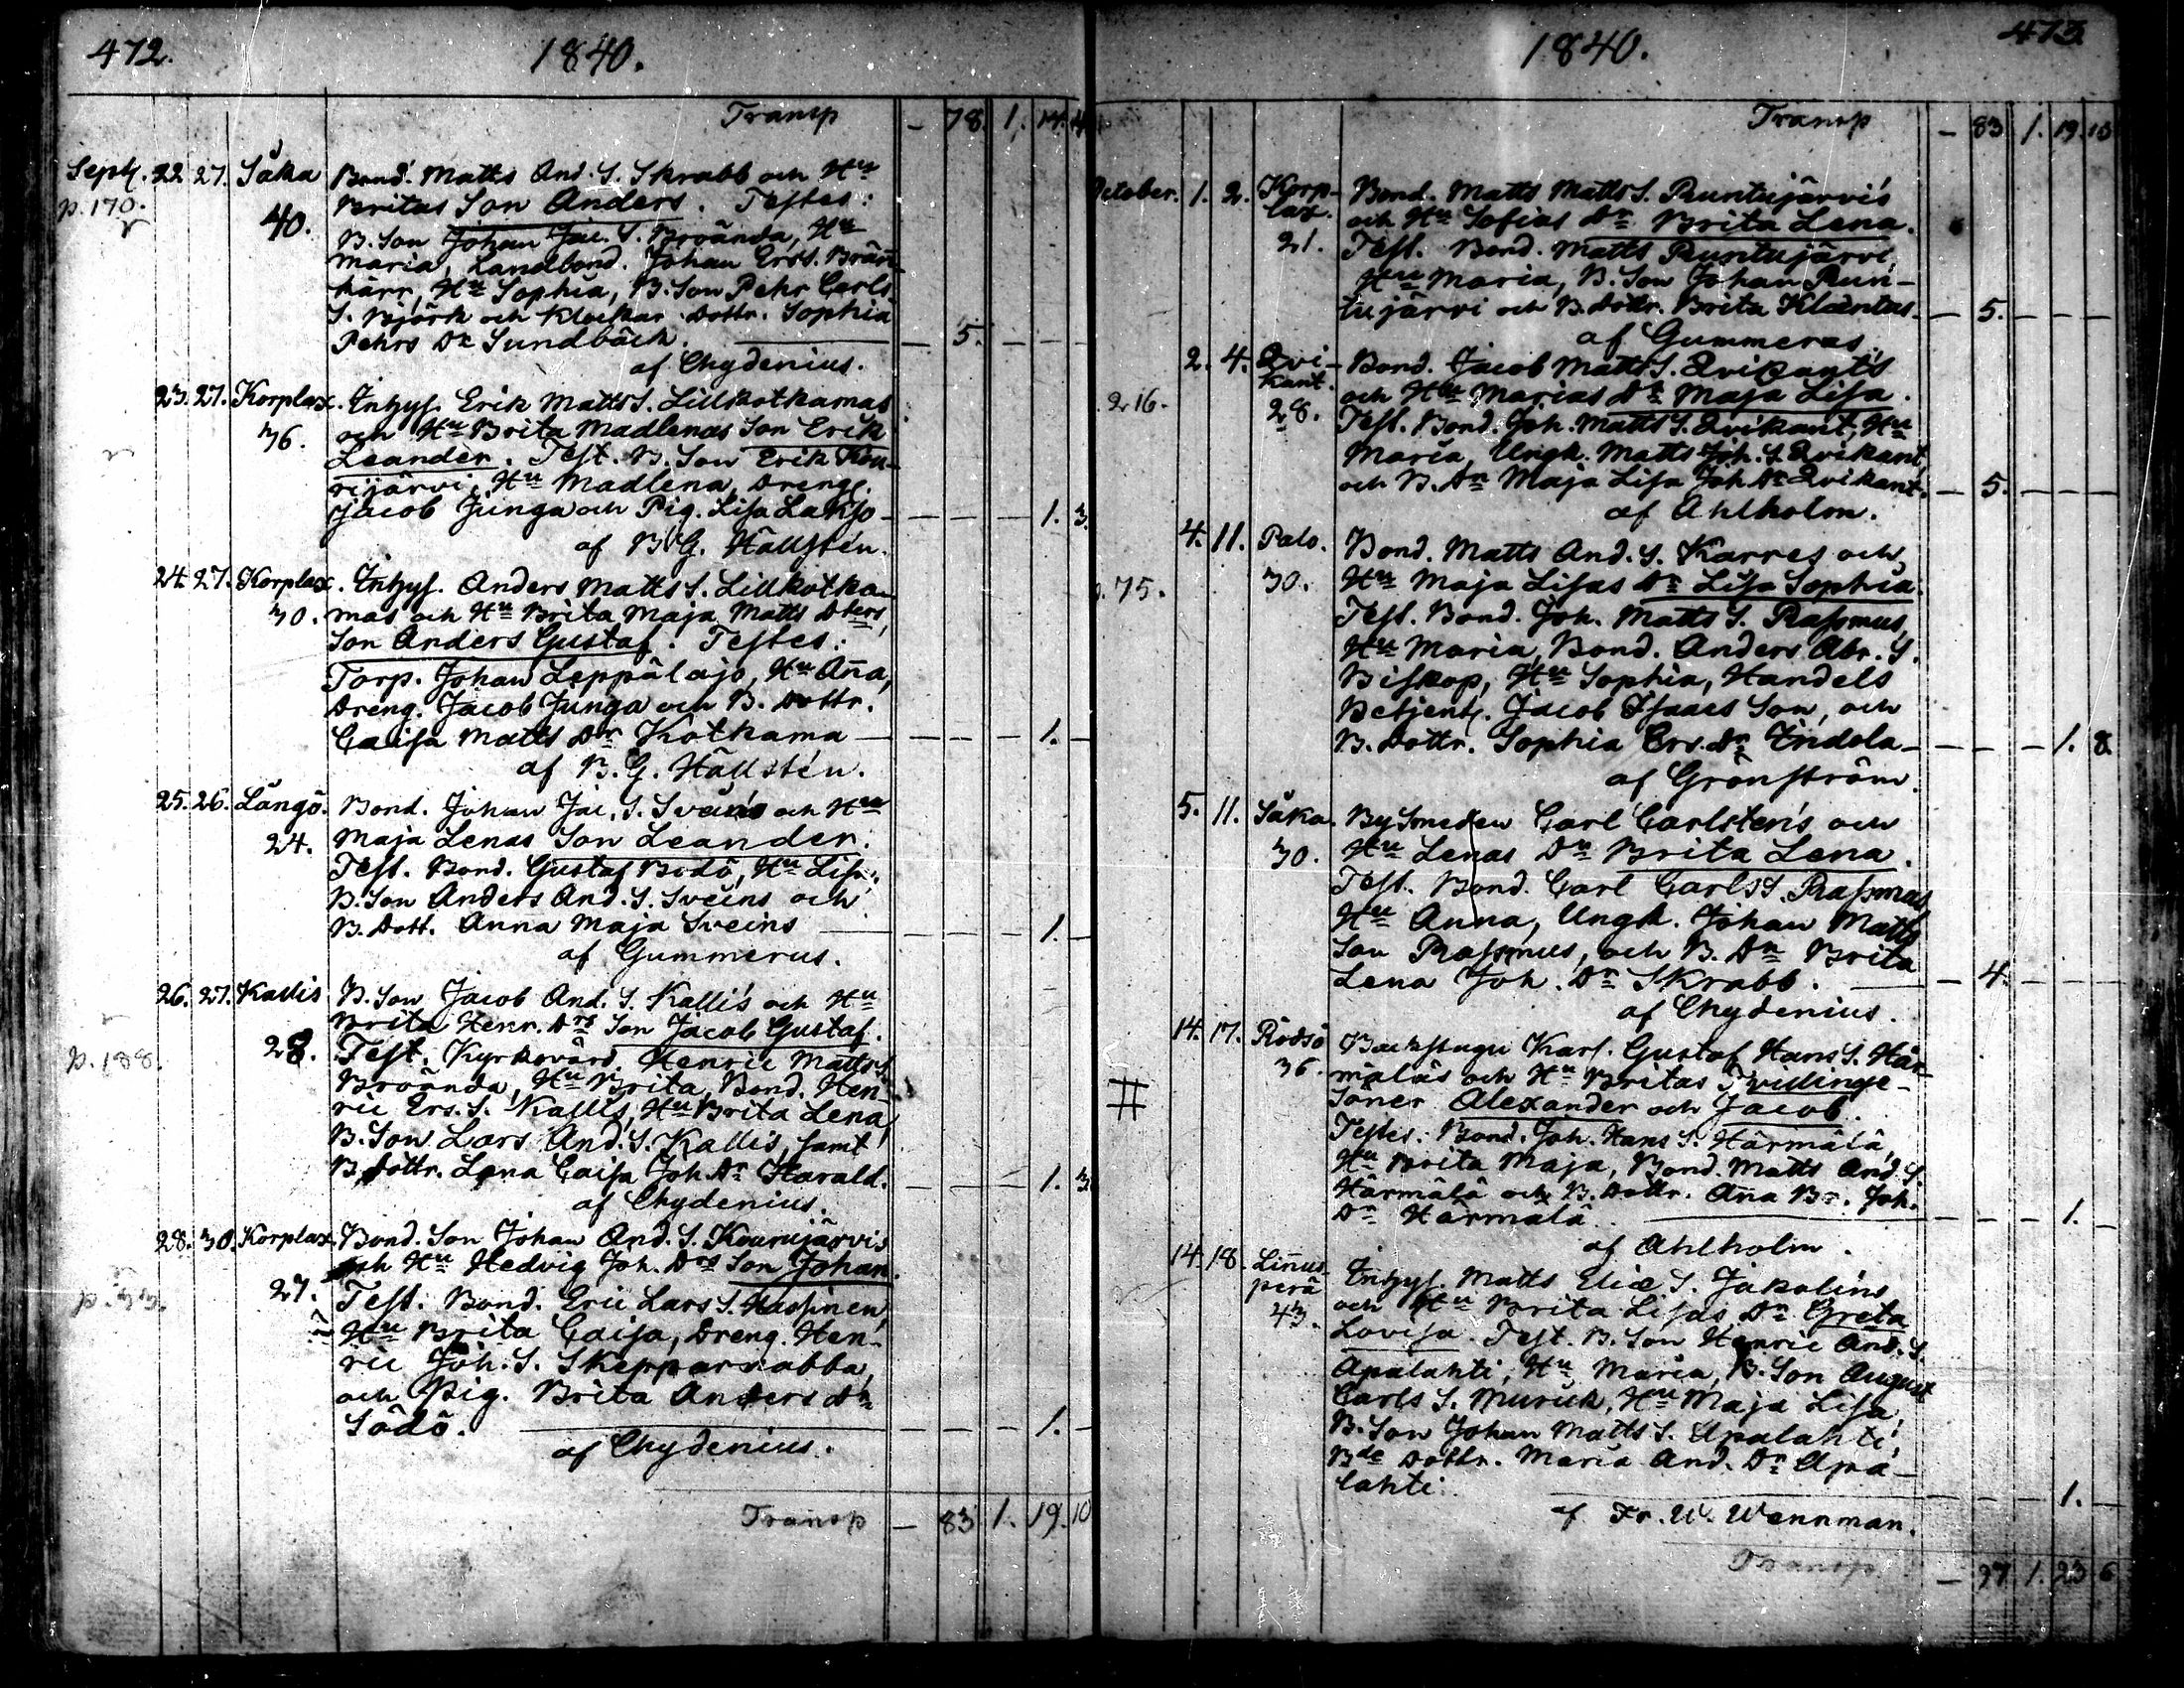 472.
1840.
Transp — 78. 1. 14. 4
Sept. 22 27. Såka Bond. Matts And. S. Skrabb och Hu
p. 170. Britas Son Anders. Testes:
40. B. Son Johan Jac. S. Broända, Hu
Maria, Landbond. Johan Erss. Bränn-
kärr, Hu Sophia, B. Son Pehr Carls
S. Björk och Klockar Dottr. Sophia
Pehrs Dr Sundbäck. — 5. — —
af Chydenius.
23. 27. Korplax. Inhys. Erik Matts S. Lillkotkamas
36. och Hu Brita Madlenas Son Erik
Leander. Test. B. Son Erik Kou-
rijärvi, Hu Madlena, Dreng.
Jacob Junga och Pig. Lisa Lakso — — — 1. 3.
af B. G. Hällstén.
24. 27. Korplax. Inhys. Anders Matts S. Lillkotka-
30. mas och Hu Brita Maja Matts Dters
Son Anders Gustaf. Testes:
Torp. Johan Leppälajo, Hu Ana,
Dreng. Jacob Junga och B. Dottr.
Caisa Matts Dr Kotkama — — — 1. —
af B. G. Hällstén.
25. 26. Långö. Bond. Johan Jac. S. Sveins och Hu
24. Maja Lenas Son Leander.
Test. Bond. Gustaf Bodö, Hu Lisa,
B. Son Anders And. S. Sveins och
B. Dott. Anna Maja Sveins — — — 1. —
af Gummerus.
26. 27. Kallis B. Son Jacob And. S. Kallis och Hu
Brita Henr. Drs Son Jacob Gustaf.
p. 188. 28. Test. Kyrkovärd. Henric Matts S.
Broända, Hu Brita, Bond. Hen-
ric Ers. S. Kallis, Hu Brita Lena,
B. Son Lars And. S. Kallis, samt
B. Dottr. Lena Caisa Joh. Dr Harald. — — — 1. 3
af Chydenius.
28. 30. Korplax. Bond. Son Johan And. S. Kourujärvis
och Hu Hedvig Joh. Drs Son Johan.
27. Test. Bond. Eric Lars S. Hassinen,
Hu Brita Caisa, Dreng. Hen-
ric Joh. S. Skepparnabba,
och Pig. Brita Anders Dr
Södö. — — — 1. —
af Chydenius.
Transp — 83 1. 19. 10
473.
1840.
Transp — 83 1. 19. 10
October. 1. 2. Korp- Bond. Matts Matts S. Runtujärvis
lax. och Hu Sofias Dr Brita Lena.
21. Test. Bond. Matts Runtujärvi,
Hu Maria, B. Son Johan Run-
tujärvi och B. Dottr. Brita Klæntas — 5. — —
af Gummerus.
2. 4. Qvi- Bond. Jacob Matts S. Qvikants
kant. och Hu Marias Dr Maja Lisa.
216. 28. Test. Bond. Joh. Matts S. Qvikant, Hu
Maria, Ungk. Matts Joh. S. Qvikant,
och B. Dr Maja Lisa Joh Dr Qvikant. — 5. — —
af Ahlholm.
4. 11. Palo. Bond. Matts And. S. Karres och
75. 30. Hu Maja Lisas Dr Lisa Sophia.
Test. Bond. Joh. Matts S. Rasmus,
Hu Maria, Bond. Anders Abr. S.
Biskop, Hu Sophia, Handels
Betjent. Jacob Isaacs Son, och
B. Dottr. Sophia Ers. Dr Indola — — — 1. 8.
af Grönström.
5. 11. Såka. By Smeden Carl Carlstens och
30. Hu Lenas Dr Brita Lena.
Test. Bond. Carl Carls S. Rasmus,
Hu Anna, Ungk. Johan Matts
Son Rasmus, och B. Dr Brita
Lena Joh. Dr Skrabb. — 4. — —
af Chydenius.
14. 17. Rödsö Backstugu Karl. Gustaf Hans S. Här-
36. mäläs och Hu Britas Tvillinge-
# Söner Alexander och Jacob.
Testes. Bond. Joh. Hans S. Härmälä,
Hu Brita Maja, Bond. Matts And. S.
Härmälä och B. Dottr. Ana Br. Joh.
Dr Härmälä. — — — 1. —
af Ahlholm.
14. 18. Linus- Inhys. Matts Eliæ S. Jakolins
perä och Hu Brita Lisas Dr Greta
43. Lovisa. Test. B. Son Henric And. S.
Apalahti, Hu Maria, B. Son August
Carls S. Murick, Hu Maja Lisa,
B. Son Johan Matts S. Apalahti,
Bde Dottr. Maria And. Dr Apa-
lahti. — — — 1. —
af Fr. W. Wennman.
Transp — 97 1. 23 6